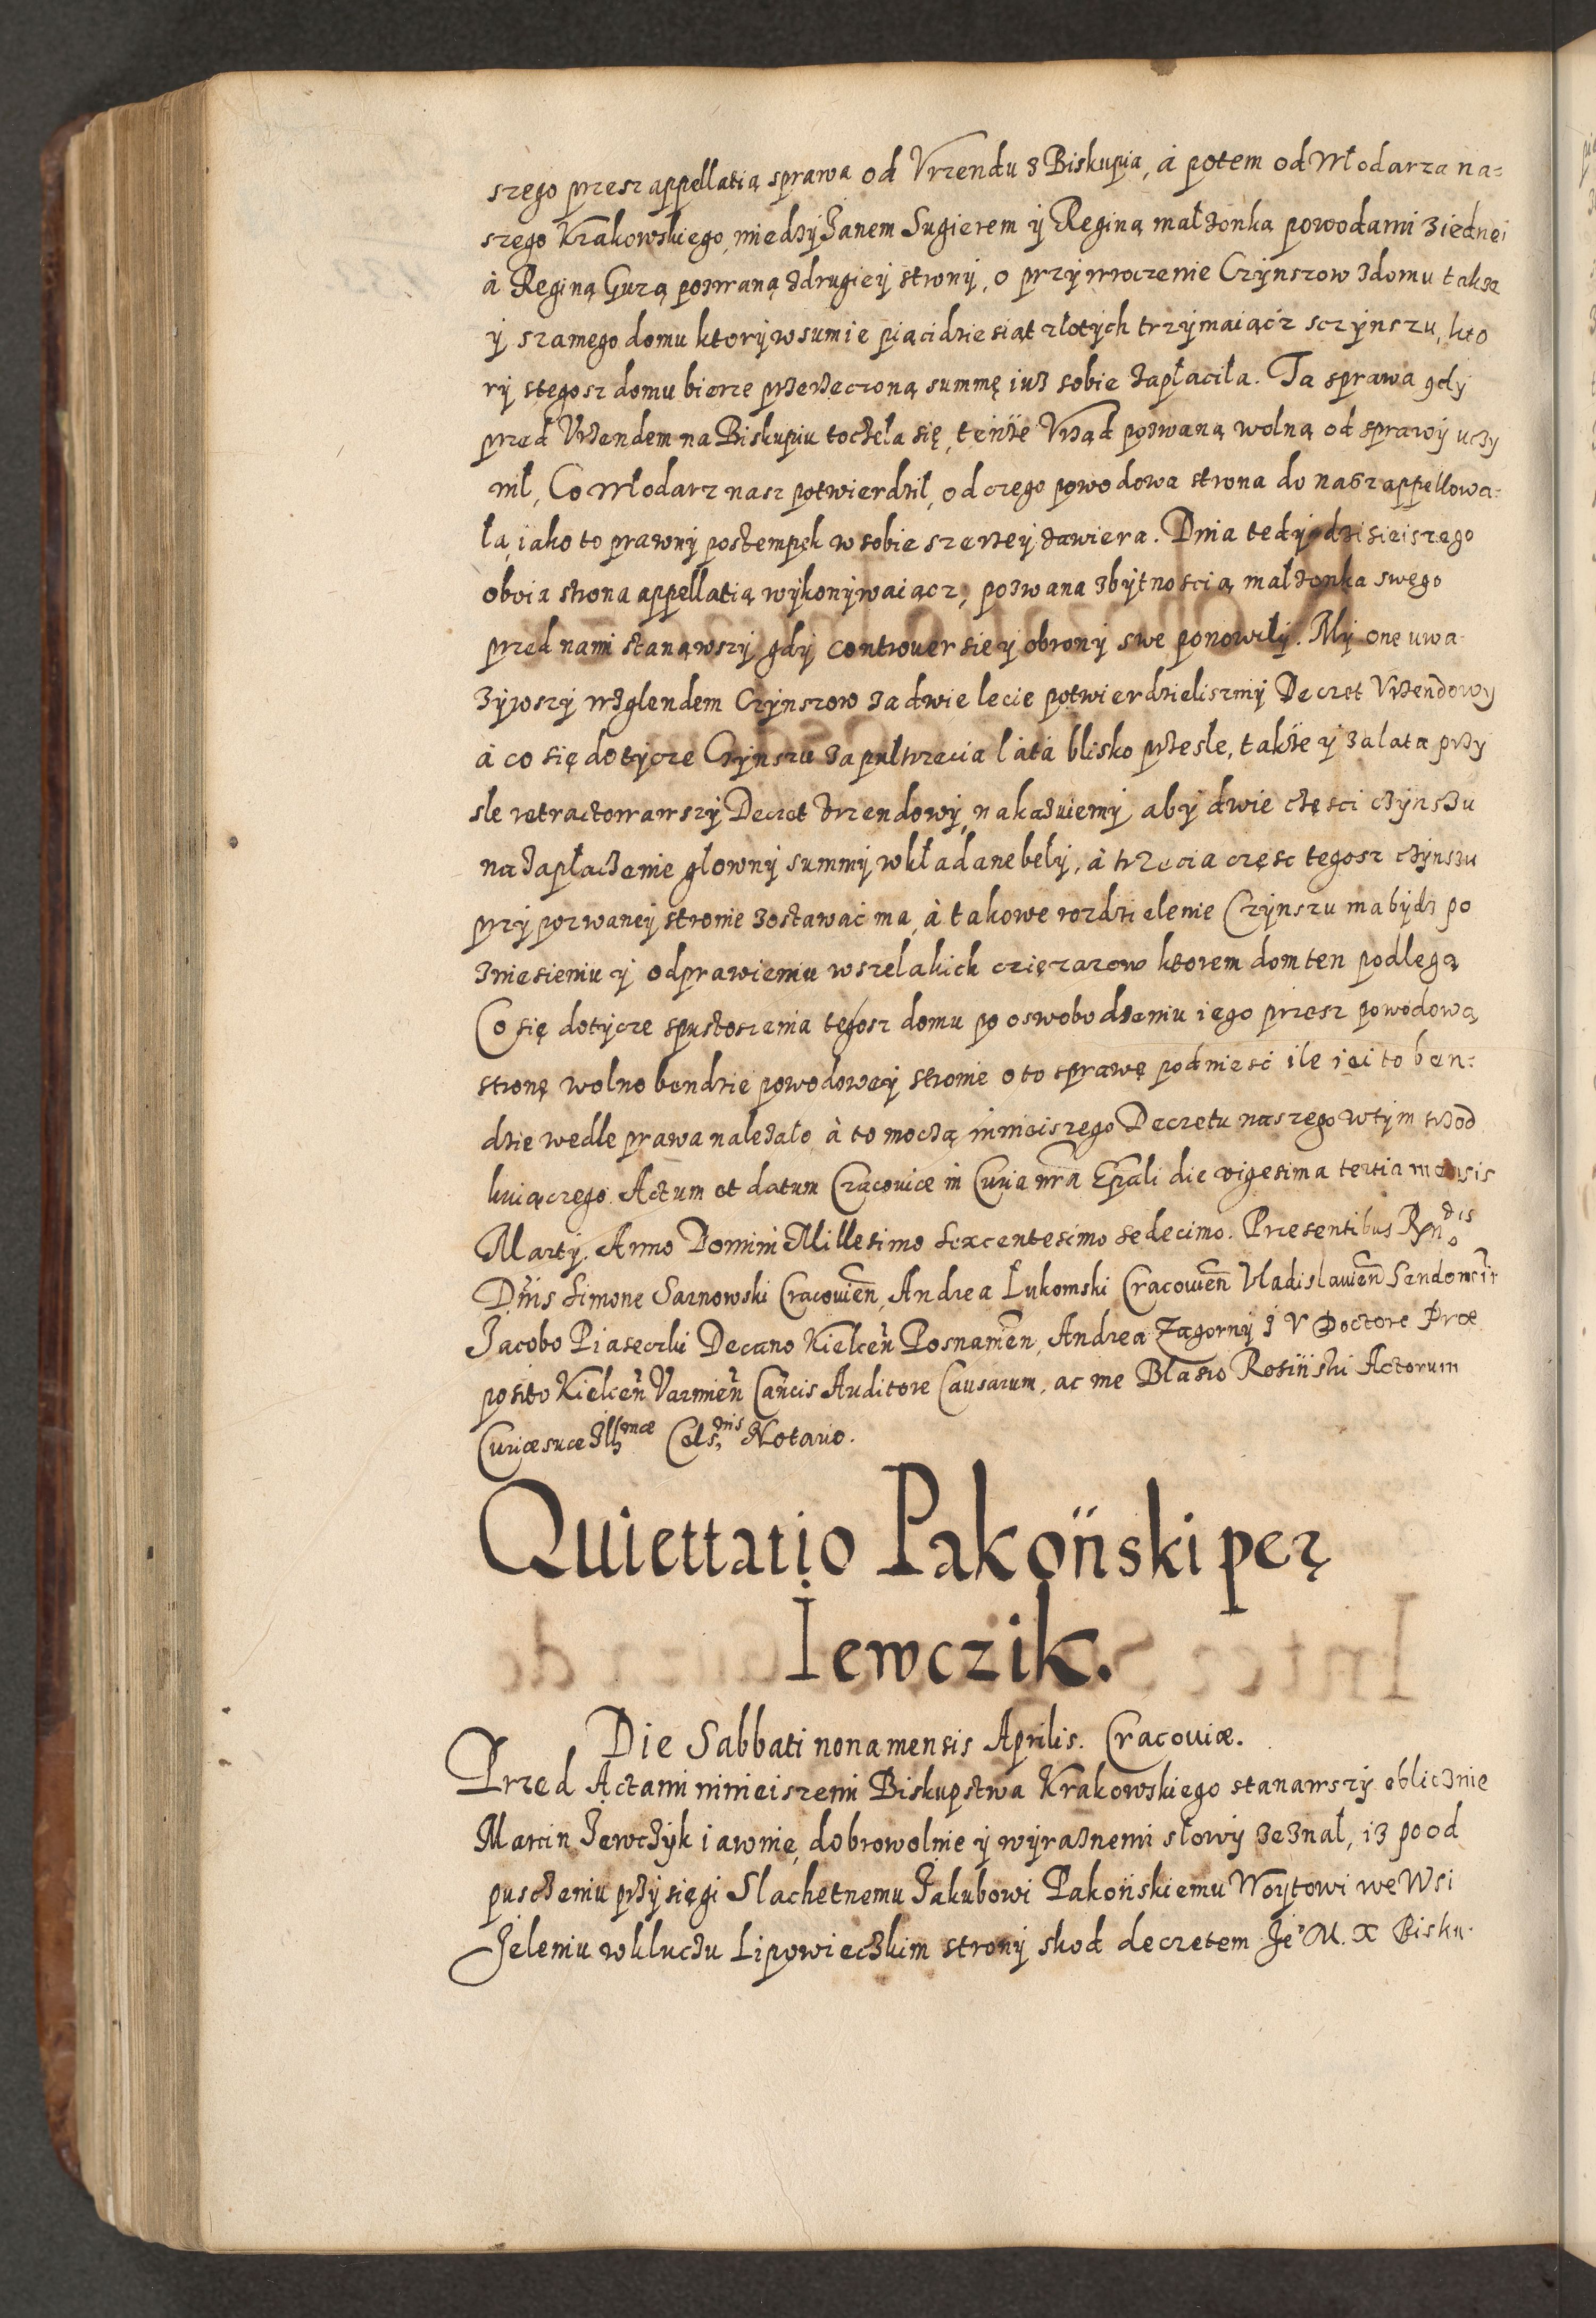 szego przesz appellatią sprawa od Vrzendu z Biskupia, à potem od Włodarza na=
szego Krakowskiego, miedzy Janem Sugierem ÿ Reginą małzonką powodami z iednei
à Reginą Guzą pozwaną z drugieÿ stronÿ, o przÿwroczenie Czÿnszow z domu takze
ÿ szamego domu ktorÿ w sumie piącidziesiąt złotÿch trzÿmaiącz sczÿnszu, kto
rÿ stegosz domu bierze przerzeczoną summę iuz sobie zapłaciła. Ta sprawa gdÿ
przed Vrzendem na Biskupiu toczela się, tenze Vrząd pozwaną wolną od sprawÿ uczÿ
nił, Co Włodarz nasz potwierdził, od czego powodowa strona do nasz appellowa=
ła, iako to prawnÿ postempek w sobie szerzeÿ zawiera. Dnia tedÿ dzisieiszego
oboia strona appellatią wÿkonÿwaiącz, pozwana zbÿtnoscią małzonka swęgo
przed nami stanąwszÿ gdÿ controuersie ÿ obronÿ swe ponowiłÿ. Mÿ onę uwa=
zÿwszÿ wzglendem Czÿnszow za dwie lecie potwierdzieliszmÿ Decret Vrzendowÿ
à co się dotÿcze Czÿnszu za pułtrzecia lata blisko przesłe, takze ÿ za lata przÿ
słe retractowawszÿ Decret Vrzendowÿ, nakazuiemÿ abÿ dwie częsci czÿnszu
na zapłaczenie głownÿ summÿ wkładane bełÿ, à trzecia częsc tegosz czÿnszu
przÿ pozwaneÿ stronie zostawać ma, à takowe rozdzielenie Czÿnszu ma bÿdz po
zniesieniu ÿ odprawieniu wszelakich cziężarow ktorem dom ten podlega,
Co się dotÿcze spustoszenia tęgosz domu po oswobodzeniu iego przesz powodową
stronę wolno bendzie powodoweÿ stronie o to sprawę podniesć ile iei to ben=
dzie wedle prawa nalezało, à to moczą ninieiszego Decretu naszego w tÿm srzod
kuiączego. Actum et datum Cracoviæ in Curia nrã Epãli die vigesima tertia mensis
Martÿ. Anno Domini Millesimo Sexcentesimo sedecimo. Præsentibus Rñdis
Dñis Simone Sarnowski Cracovieñ, Andrea Łukomski Cracovieñ Vladislavieñ Sendomir
Jacobo Piaseczki Decano Kielceñ Posnanieñ, Andrea Zagornÿ J V Doctore Præ
posito Kielceñ Varmieñ Cañcis Auditore Causarum, ac me Blasio Rosiński Actorum
Curiæ suæ Illmæ Cels̃nis Notario.
Quiettatio Pakoński per
Iewczik.
Die Sabbati nona mensis Aprilis. Cracoviæ.
Przed Actami ninieiszemi Biskupstwa Krakowskiego stanawszÿ oblicznie
Marcin Jewczÿk iawnię, dobrowolnie ÿ wÿraznemi słowÿ zeznał, iz po od
pusczeniu przÿsięgi Slachetnemu Jakubowi Pakońskiemu Woÿtowi we Wsi
Jeleniu w kluczu Lipowieczkim stronÿ skod decretem Jeº M. X Bisku=